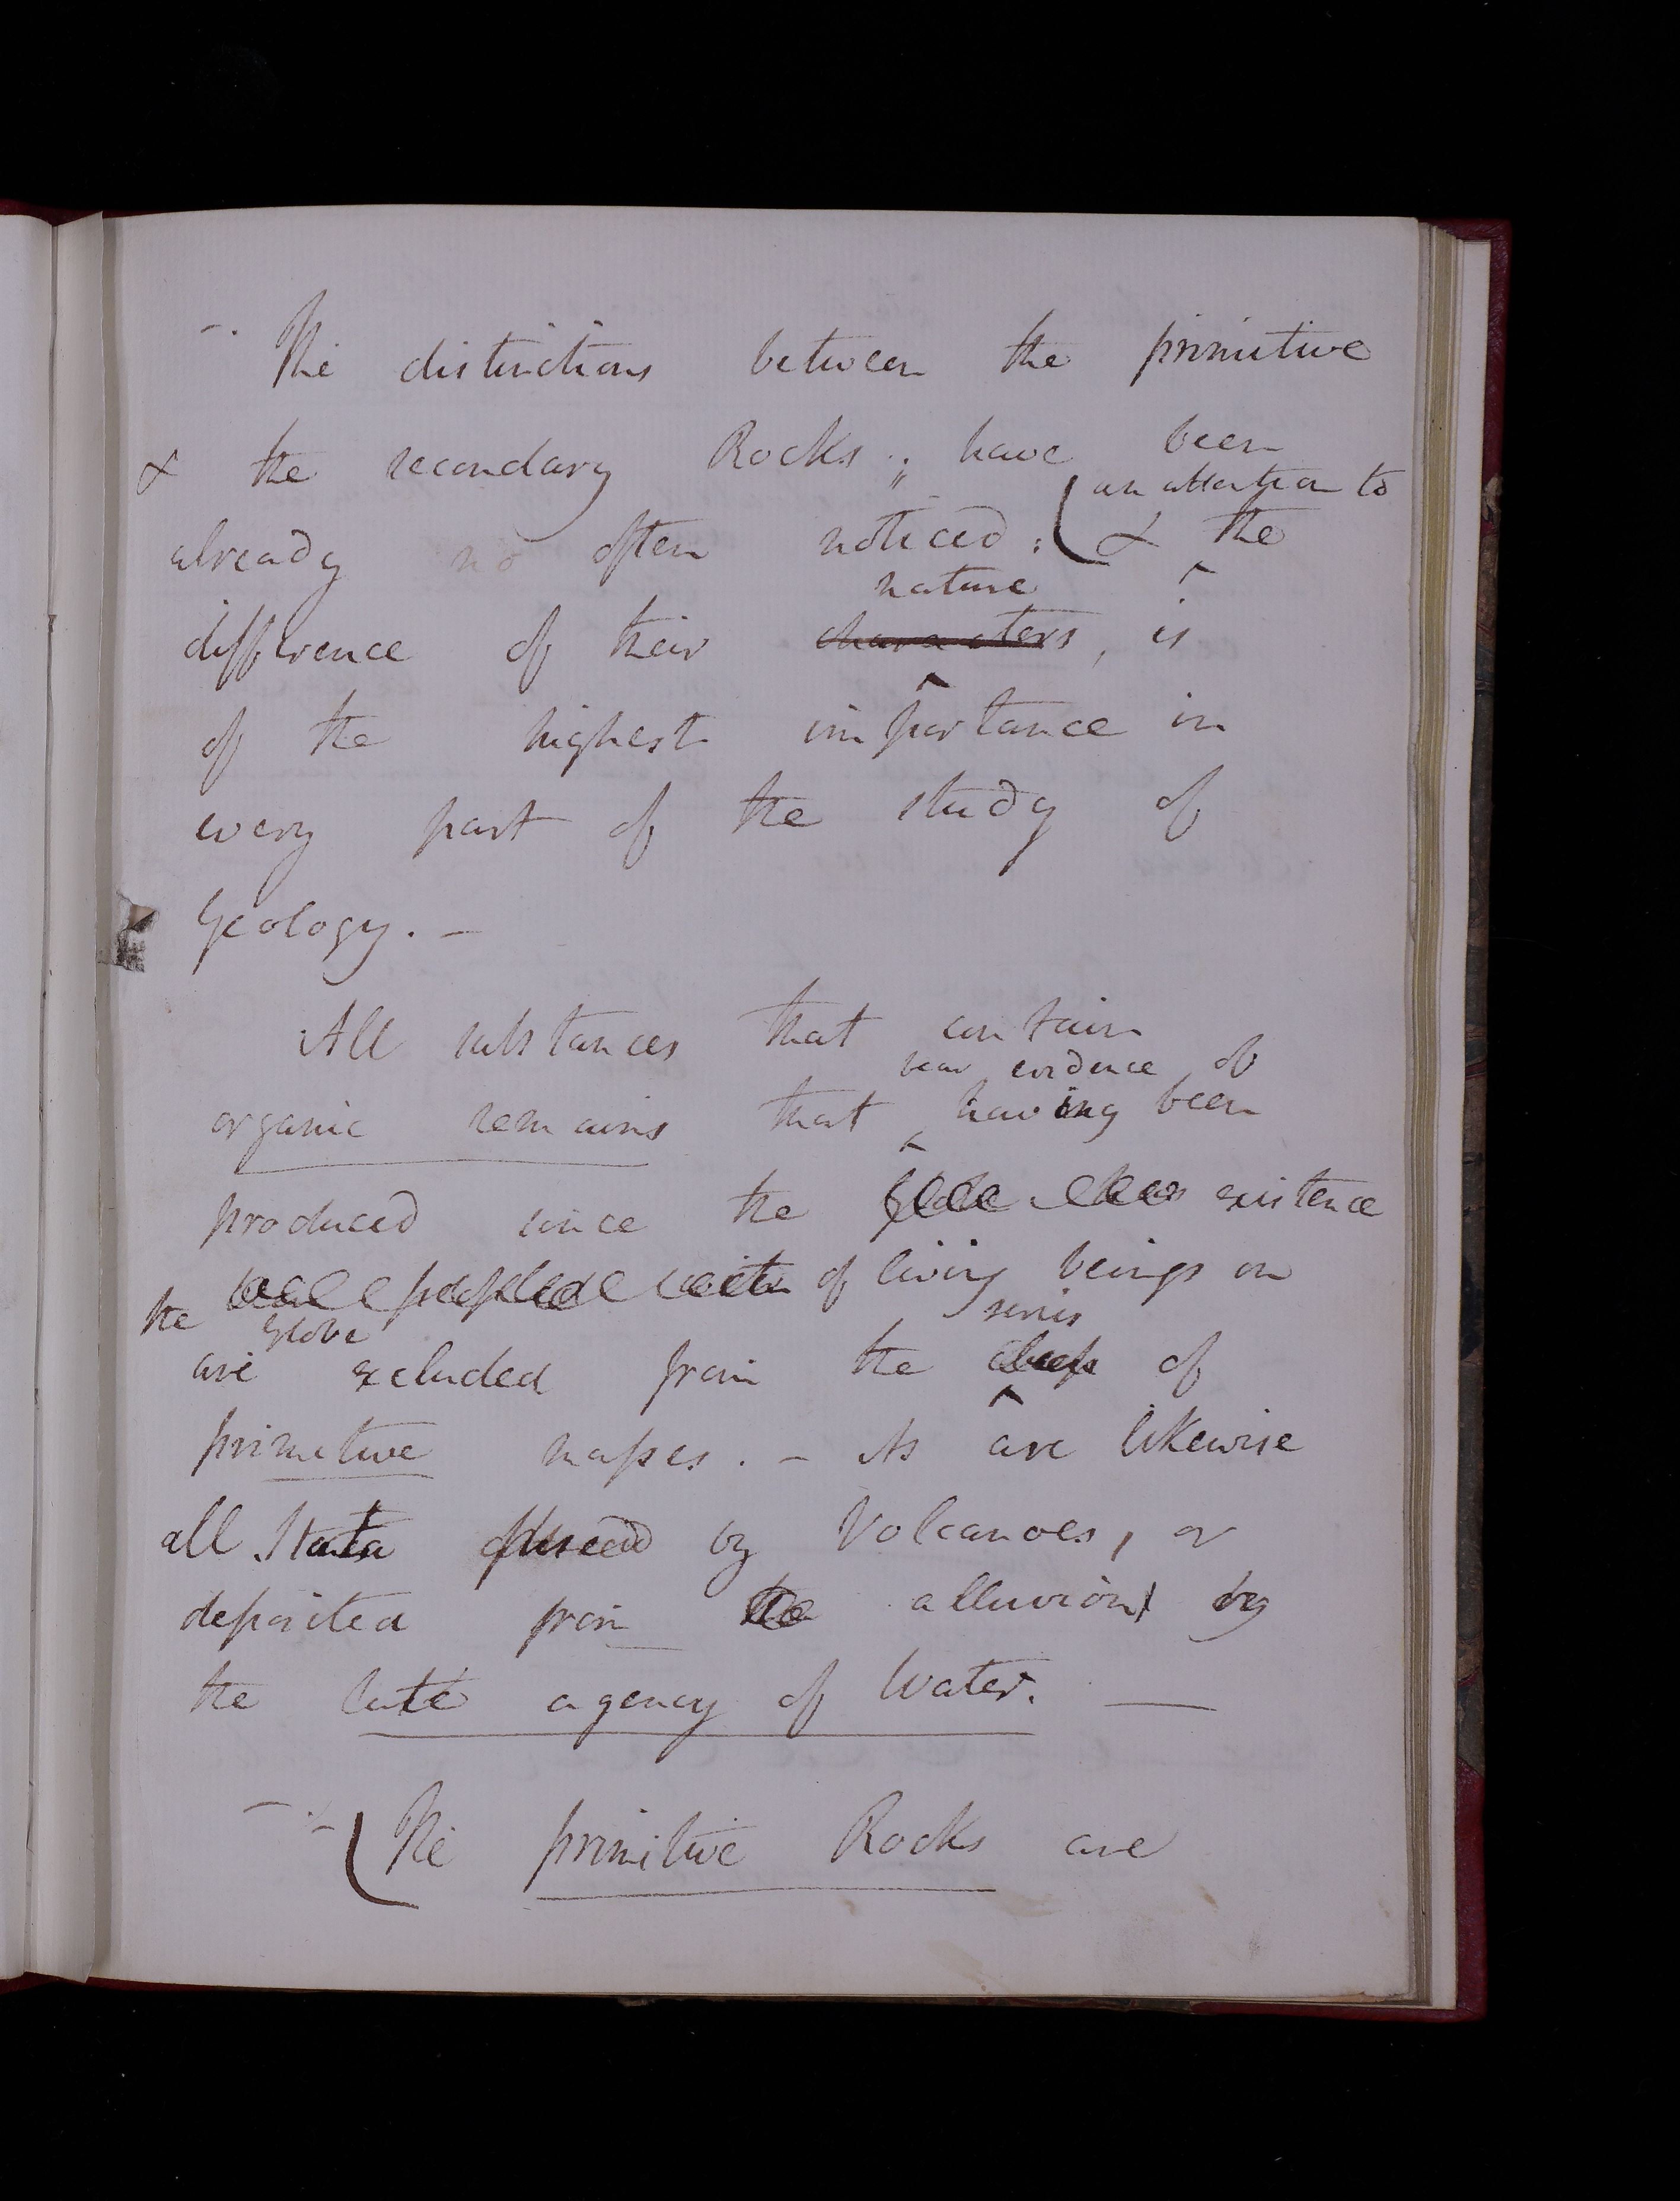 - The distinctions between the primitive
& the secondary Rocks; have been
an attention to
already so often noticed: & the
nature
difference of their characters, is
of the highest importance in
every part of the study of
Geology. -
All substances that contain
bear evidence of
organic remains that having been
produced since the existence
of living beings on
the globe
series
are excluded from the class of
primitive masses. - As are likewise
all Strata by Volcanoes, or
deposited from the alluvion by
the late agency of Water. —
- The primitive Rocks are